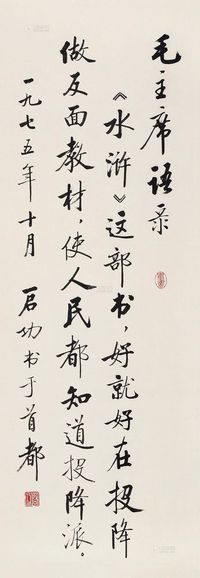 毛主席语录
《水浒》这部书，好就好在投降
做反面教材，使人民都知道投降派。
一九七五年十月 启功书于首都